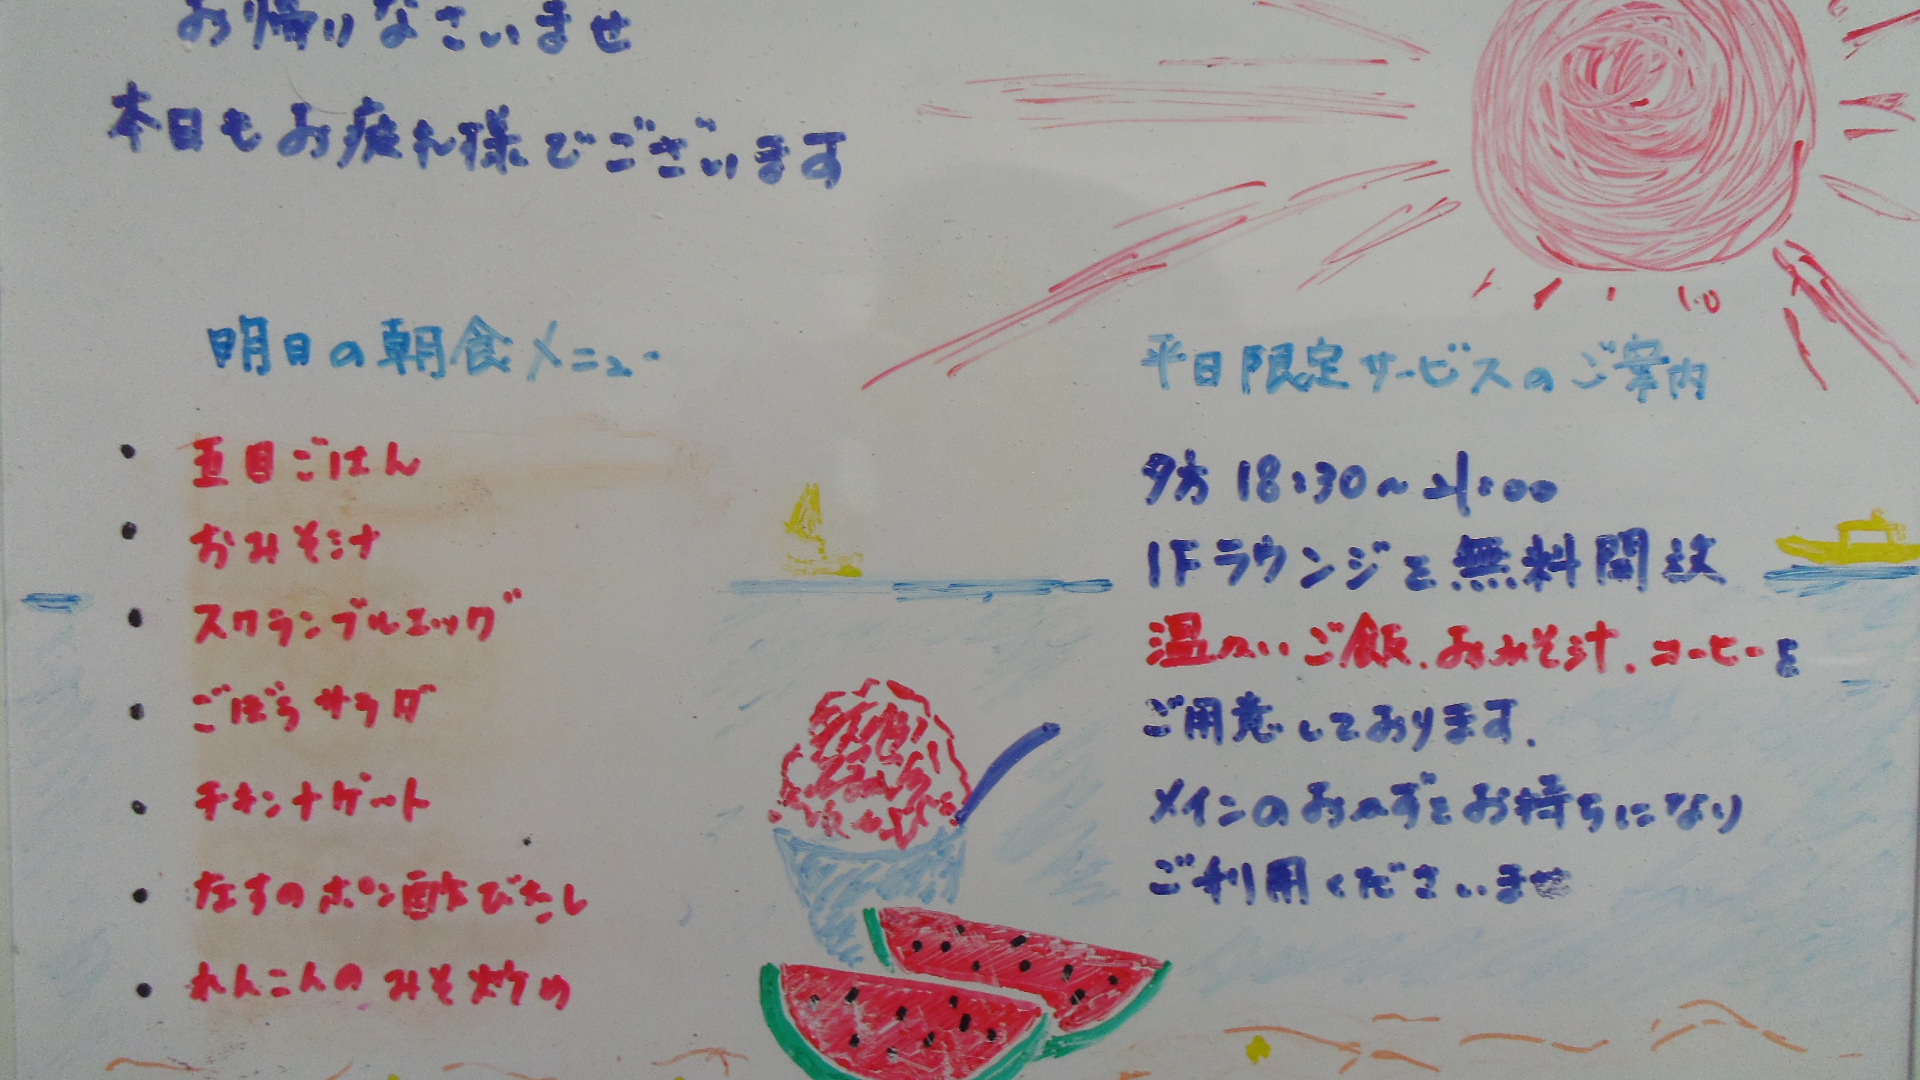 お帰りなさいませ
本日もお疲れ様でございます
明日の朝食メニュー
・五目ごはん
・おみそ汁
・スクランブルエッグ
・ごぼうサラダ
・チキンナゲット
・なすのポン酢びたし
・れんこんのみそ炒め
平日限定サービスのご案内
夕方 18:30~21:00
1Fラウンジを無料開放
温かいご飯、おみそ汁、コーヒーを
ご用意しております。
メインのおかずをお持ちになり
ご利用くださいませ